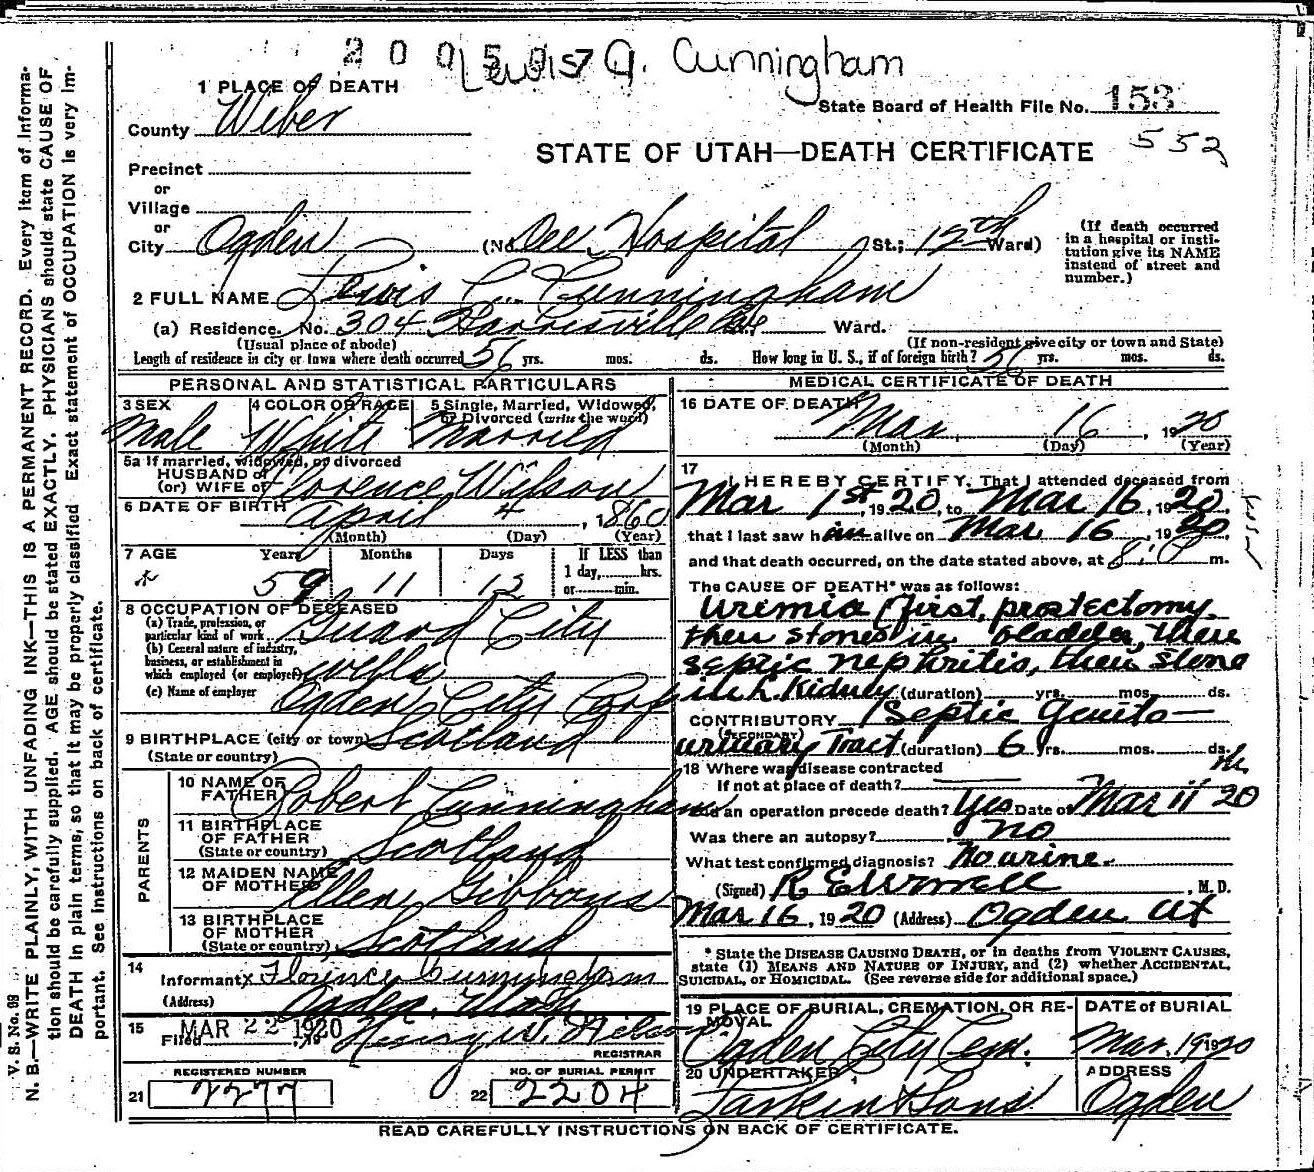 2005057
Lewis A. Cunningham
1 PLACE OF DEATH
State Board of Health File No. 153
County Weber
552
STATE OF UTAH—DEATH CERTIFICATE
Precinct
or
Village
or
City Ogden (No. Dee Hospital St.; 12th Ward)
(If death occurred in a hospital or institution give its NAME instead of street and number.)
2 FULL NAME Lewis C. Cunningham
(a) Residence. No. 304 Harrisville Ave Ward.
(Usual place of abode) (If non-resident give city or town and State)
Length of residence in city or town where death occurred 56 yrs. mos. ds. How long in U. S., if of foreign birth? 56 yrs. mos. ds.
PERSONAL AND STATISTICAL PARTICULARS
3 SEX 4 COLOR OR RACE 5 Single, Married, Widowed, or Divorced (write the word)
Male White Married
5a If married, widowed, or divorced
HUSBAND of
(or) WIFE of Florence Wilson
6 DATE OF BIRTH April 4, 1860
(Month) (Day) (Year)
7 AGE Years Months Days If LESS than
1 day, hrs.
or min.
59 11 12
8 OCCUPATION OF DECEASED
(a) Trade, profession, or particular kind of work Guard City
(b) General nature of industry, business, or establishment in which employed (or employer) wells
(c) Name of employer Ogden City Corp
9 BIRTHPLACE (city or town) Scotland
(State or country)
PARENTS
10 NAME OF FATHER Robert Cunningham
11 BIRTHPLACE OF FATHER Scotland
(State or country)
12 MAIDEN NAME OF MOTHER Ellen Gibbons
13 BIRTHPLACE OF MOTHER Scotland
(State or country)
14
Informant x Florence Cunningham
(Address) Ogden, Utah
15
Filed MAR 22 1920, 19 Henry W. Nelson
REGISTRAR
REGISTERED NUMBER NO. OF BURIAL PERMIT
21 2277 22 2204
MEDICAL CERTIFICATE OF DEATH
16 DATE OF DEATH
Mar 16, 1920
(Month) (Day) (Year)
17
I HEREBY CERTIFY, That I attended deceased from
Mar 1st, 1920, to Mar 16, 1920,
that I last saw him alive on Mar 16, 1920
and that death occurred, on the date stated above, at m.
The CAUSE OF DEATH* was as follows:
Uremia (first, prostectomy
then stones in bladder, then
septic nephritis, then stone
in L. Kidney (duration) yrs. mos. ds.
CONTRIBUTORY Septic Genito-
(SECONDARY)
urinary Tract (duration) 6 yrs. mos. ds.
18 Where was disease contracted
If not at place of death?
Did an operation precede death? Yes Date of Mar 11 20
Was there an autopsy? No
What test confirmed diagnosis? No urine
(Signed) M. D.
Mar 16, 1920 (Address) Ogden Ut
* State the DISEASE CAUSING DEATH, or in deaths from VIOLENT CAUSES, state (1) MEANS AND NATURE OF INJURY, and (2) whether ACCIDENTAL, SUICIDAL, or HOMICIDAL. (See reverse side for additional space.)
19 PLACE OF BURIAL, CREMATION, OR REMOVAL DATE OF BURIAL
Ogden City Cem. Mar. 19 1920
20 UNDERTAKER ADDRESS
Larkin & Sons Ogden
READ CAREFULLY INSTRUCTIONS ON BACK OF CERTIFICATE.
V. S. No. 09
N. B.—WRITE PLAINLY, WITH UNFADING INK—THIS IS A PERMANENT RECORD. Every item of informa-
tion should be carefully supplied. AGE should be stated EXACTLY. PHYSICIANS should state CAUSE OF
DEATH in plain terms, so that it may be properly classified. Exact statement of OCCUPATION is very im-
portant. See instructions on back of certificate.